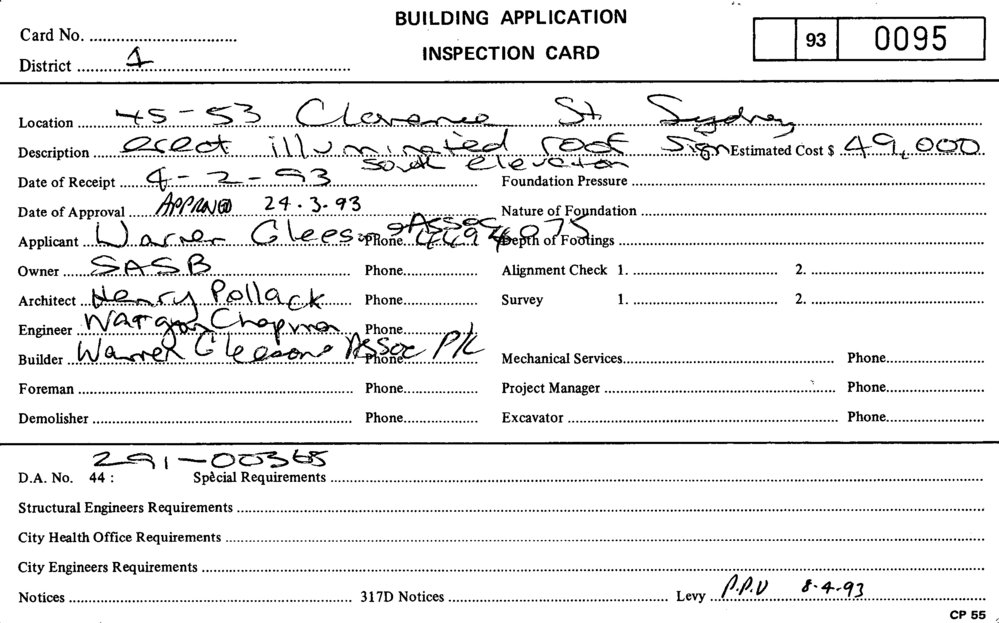 BUILDING APPLICATION
INSPECTION CARD
Card No. ....................................
District ....1....
93 0095
Location 45-53 Clarence St. Sydney
Description erect illuminated roof sign Estimated Cost $ 49,000
south elevation
Date of Receipt 4-2-93 Foundation Pressure
Date of Approval APPROVED 24.3.93 Nature of Foundation
Applicant Warren Gleeson & Assoc Phone. Depth of Footings
Owner SASB Phone. Alignment Check 1. 2.
Architect Henry Pollack Phone. Survey 1. 2.
Engineer Wargon Chapman Phone.
Builder Warren Gleesons Assoc P/L Phone. Mechanical Services Phone.
Foreman Phone. Project Manager Phone.
Demolisher Phone. Excavator Phone.
291-00365
D.A. No. 44 : Special Requirements
Structural Engineers Requirements
City Health Office Requirements
City Engineers Requirements
Notices 317D Notices Levy P.P.V 8-4-93
CP 55